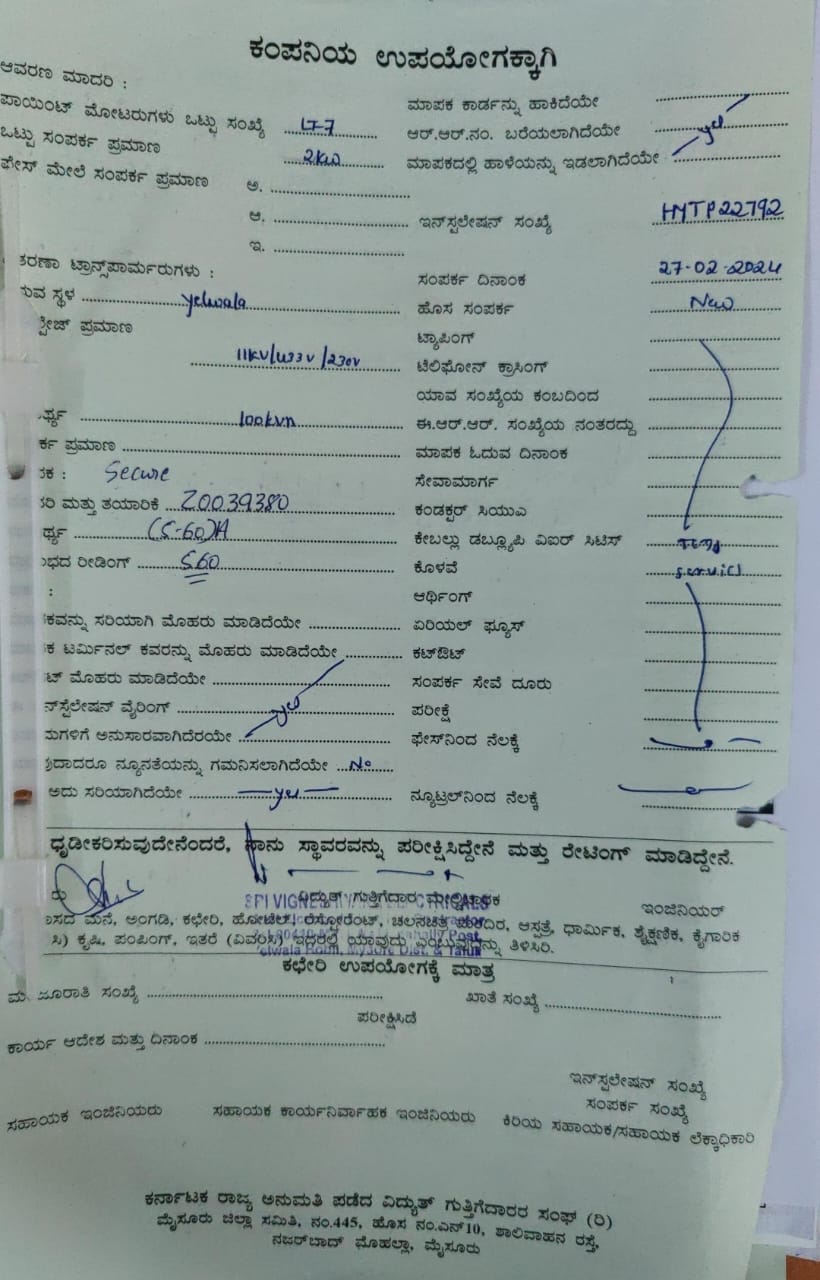 ಕಂಪನಿಯ ಉಪಯೋಗಕ್ಕಾಗಿ
ಆವರಣ ಮಾದರಿ :
ಪಾಯಿಂಟ್ ಮೋಟರುಗಳು ಒಟ್ಟು ಸಂಖ್ಯೆ LT-7
ಒಟ್ಟು ಸಂಪರ್ಕ ಪ್ರಮಾಣ 2kw
ಫೇಸ್ ಮೇಲೆ ಸಂಪರ್ಕ ಪ್ರಮಾಣ ಅ.
ಆ.
ಇ.
ಮಾಪಕ ಕಾರ್ಡನ್ನು ಹಾಕಿದೆಯೇ
ಆರ್.ಆರ್.ನಂ. ಬರೆಯಲಾಗಿದೆಯೇ yes
ಮಾಪಕದಲ್ಲಿ ಹಾಳೆಯನ್ನು ಇಡಲಾಗಿದೆಯೇ
ಇನ್‌ಸ್ಟಲೇಷನ್ ಸಂಖ್ಯೆ HYTP22792
ತರಣಾ ಟ್ರಾನ್ಸ್‌ಪಾರ್ಮರುಗಳು :
ರುವ ಸ್ಥಳ yelwala
್ಟೇಜ್ ಪ್ರಮಾಣ
11KV/433V/230V
ರ್ಥ್ಯ 100kva
ರ್ಕ ಪ್ರಮಾಣ
ಪಕ : Secure
ತರಿ ಮತ್ತು ತಯಾರಿಕೆ Z0039380
ರ್ಥ್ಯ (5-60)A
ಂಭದ ರೀಡಿಂಗ್ 560
:
ಪಕವನ್ನು ಸರಿಯಾಗಿ ಮೊಹರು ಮಾಡಿದೆಯೇ
ಕ ಟರ್ಮಿನಲ್ ಕವರನ್ನು ಮೊಹರು ಮಾಡಿದೆಯೇ
ಟ್ ಮೊಹರು ಮಾಡಿದೆಯೇ
ನ್‌ಸ್ಟಲೇಷನ್ ವೈರಿಂಗ್ yes
ಮಗಳಿಗೆ ಅನುಸಾರವಾಗಿದೆರಯೇ
ವುದಾದರೂ ನ್ಯೂನತೆಯನ್ನು ಗಮನಿಸಲಾಗಿದೆಯೇ No
ಅದು ಸರಿಯಾಗಿದೆಯೇ yes
ಸಂಪರ್ಕ ದಿನಾಂಕ 27-02-2024
ಹೊಸ ಸಂಪರ್ಕ New
ಟ್ಯಾಪಿಂಗ್
ಟೆಲಿಫೋನ್ ಕ್ರಾಸಿಂಗ್
ಯಾವ ಸಂಖ್ಯೆಯ ಕಂಬದಿಂದ
ಈ.ಆರ್.ಆರ್. ಸಂಖ್ಯೆಯ ನಂತರದ್ದು
ಮಾಪಕ ಓದುವ ದಿನಾಂಕ
ಸೇವಾಮಾರ್ಗ
ಕಂಡಕ್ಟರ್ ಸಿಯುಎ
ಕೇಬಲ್ಲು ಡಬ್ಲ್ಯೂಪಿ ವಿಐರ್ ಸಿಟಿಸ್
ಕೊಳವೆ service
ಅರ್ಥಿಂಗ್
ಏರಿಯಲ್ ಫ್ಯೂಸ್
ಕಟ್‌ಔಟ್
ಸಂಪರ್ಕ ಸೇವೆ ದೂರು
ಪರೀಕ್ಷೆ
ಫೇಸ್‌ನಿಂದ ನೆಲಕ್ಕೆ
ನ್ಯೂಟ್ರಲ್‌ನಿಂದ ನೆಲಕ್ಕೆ
ಧೃಡೀಕರಿಸುವುದೇನೆಂದರೆ, ನಾನು ಸ್ಥಾವರವನ್ನು ಪರೀಕ್ಷಿಸಿದ್ದೇನೆ ಮತ್ತು ರೇಟಿಂಗ್ ಮಾಡಿದ್ದೇನೆ.
ರು ವಿದ್ಯುತ್ ಗುತ್ತಿಗೆದಾರ ಮೇಲ್ವಿಚಾರಕ ಇಂಜಿನಿಯರ್
ಾಸದ ಮನೆ, ಅಂಗಡಿ, ಕಛೇರಿ, ಹೋಟೆಲ್, ರೆಸ್ಟೋರೆಂಟ್, ಚಲನಚಿತ್ರ ಮಂದಿರ, ಆಸ್ಪತ್ರೆ, ಧಾರ್ಮಿಕ, ಶೈಕ್ಷಣಿಕ, ಕೈಗಾರಿಕ
ಸಿ) ಕೃಷಿ, ಪಂಪಿಂಗ್, ಇತರೆ (ವಿವರಿಸಿ) ಇದರಲ್ಲಿ ಯಾವುದು ಎಂಬುವುದನ್ನು ತಿಳಿಸಿರಿ.
ಕಛೇರಿ ಉಪಯೋಗಕ್ಕೆ ಮಾತ್ರ
ಮಂಜೂರಾತಿ ಸಂಖ್ಯೆ ಖಾತೆ ಸಂಖ್ಯೆ
ಪರೀಕ್ಷಿಸಿದೆ
ಕಾರ್ಯ ಆದೇಶ ಮತ್ತು ದಿನಾಂಕ
ಇನ್‌ಸ್ಟಲೇಷನ್ ಸಂಖ್ಯೆ
ಸಂಪರ್ಕ ಸಂಖ್ಯೆ
ಸಹಾಯಕ ಇಂಜಿನಿಯರು ಸಹಾಯಕ ಕಾರ್ಯನಿರ್ವಾಹಕ ಇಂಜಿನಿಯರು ಕಿರಿಯ ಸಹಾಯಕ/ಸಹಾಯಕ ಲೆಕ್ಕಾಧಿಕಾರಿ
ಕರ್ನಾಟಕ ರಾಜ್ಯ ಅನುಮತಿ ಪಡೆದ ವಿದ್ಯುತ್ ಗುತ್ತಿಗೆದಾರರ ಸಂಘ (ರಿ)
ಮೈಸೂರು ಜಿಲ್ಲಾ ಸಮಿತಿ, ನಂ.445, ಹೊಸ ನಂ.ಎನ್10, ಶಾಲಿವಾಹನ ರಸ್ತೆ,
ನಜರ್‌ಬಾದ್ ಮೊಹಲ್ಲಾ, ಮೈಸೂರು